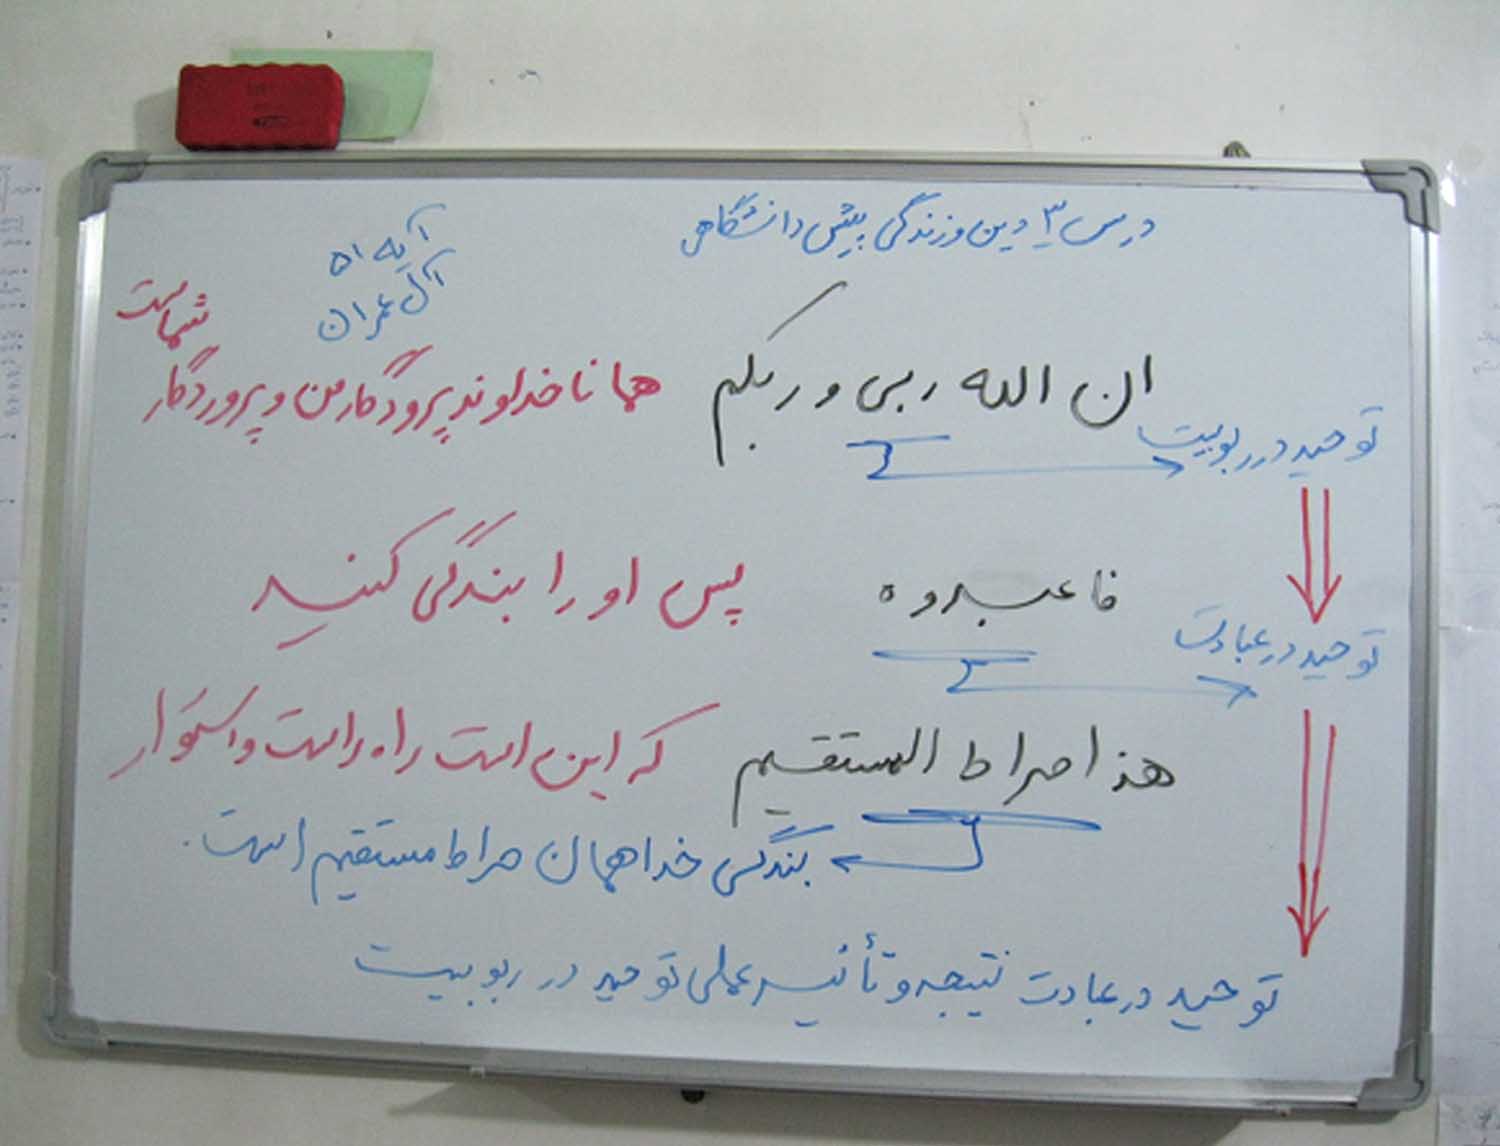 درس ۳ دین و زندگی پیش دانشگاهی
آیه ۵۱
آل عمران
ان الله ربی و ربکم
همانا خداوند پرودگار من و پروردگار
شماست
توحید در ربوبیت
فاعبدوه
پس او را بندگی کنید
توحید در عبادت
هذا صراط المستقیم
که این است راه راست و استوار
بندگی خدا همان صراط مستقیم است.
توحید در عبادت نتیجه و تأثیر عملی توحید در ربوبیت